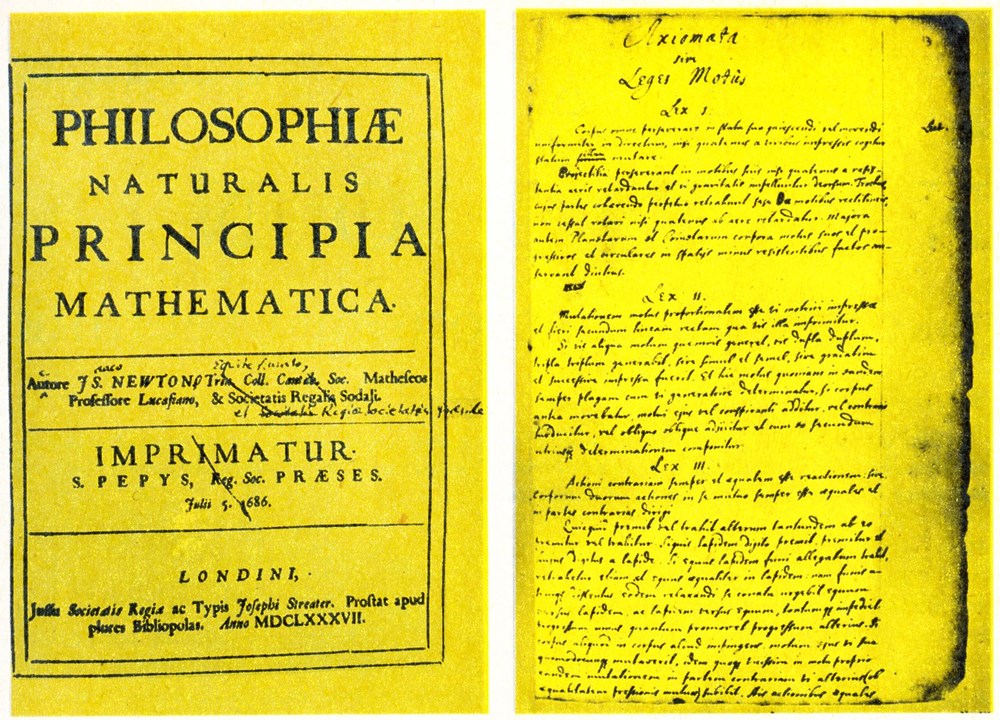 PHILOSOPHIÆ
NATURALIS
PRINCIPIA
MATHEMATICA.
Autore JS. NEWTON, Trin. Coll. Cantab. Soc. Matheseos
Professore Lucasiano, & Societatis Regalis Sodali.
IMPRIMATUR.
S. PEPYS, Reg. Soc. PRÆSES.
Julii 5. 1686.
LONDINI,
Jussu Societatis Regiæ ac Typis Josephi Streater. Prostat apud
plures Bibliopolas. Anno MDCLXXXVII.
Axiomata
sive
Leges Motûs
Lex I.
Corpus omne perseverare in statu suo quiescendi vel movendi
uniformiter in directum, nisi quatenus a viribus impressis cogitur
statum illum mutare.
Projectilia perseverant in motibus suis nisi quatenus a resis-
tentia aeris retardantur et vi gravitatis impelluntur deorsum. Trochus
cujus partes cohærendo perpetuo retrahunt sese a motibus rectilineis,
non cessat rotari nisi quatenus ab aere retardatur. Majora
autem Planetarum et Cometarum corpora motus suos et pro-
gressivos et circulares in spatijs minus resistentibus factos con-
servant diutius.
Lex II.
Mutationem motus proportionalem esse vi motrici impressæ
et fieri secundum lineam rectam qua vis illa imprimitur.
Si vis aliqua motum quemvis generet, vis dupla duplum,
tripla triplum generabit, sive simul et semel, sive gradatim
et successive impressa fuerit. Et hic motus quoniam in eandem
semper plagam cum vi generatrice determinatur, si corpus
antea movebatur, motui ejus vel conspiranti additur, vel contrario
subducitur, vel obliquo oblique adjicitur et cum eo secundum
utriusq determinationem componitur.
Lex III.
Actioni contrariam semper et æqualem esse reactionem: sive
corporum duorum actiones in se mutuo semper esse æquales et
in partes contrarias dirigi.
Quicquid premit vel trahit alterum tantundem ab eo
premitur vel trahitur. Siquis lapidem digito premit, premitur et
hujus digitus a lapide. Si equus lapidem funi allegatum trahit,
retrahetur etiam et equus æqualiter in lapidem: nam funis
distentus eodem relaxandi se conatu urgebit equum
versus lapidem, ac lapidem versus equum, tantumq impediet
progressum unius quantum promovet progressum alterius. Si
corpus aliquod in corpus aliud impingens, motum ejus vi sua
quomodocunq mutaverit, idem quoq vicissim in motu proprio
eandem mutationem in partem contrariam vi alterius (ob
æqualitatem pressionis mutuæ) subibit. His actionibus æquales